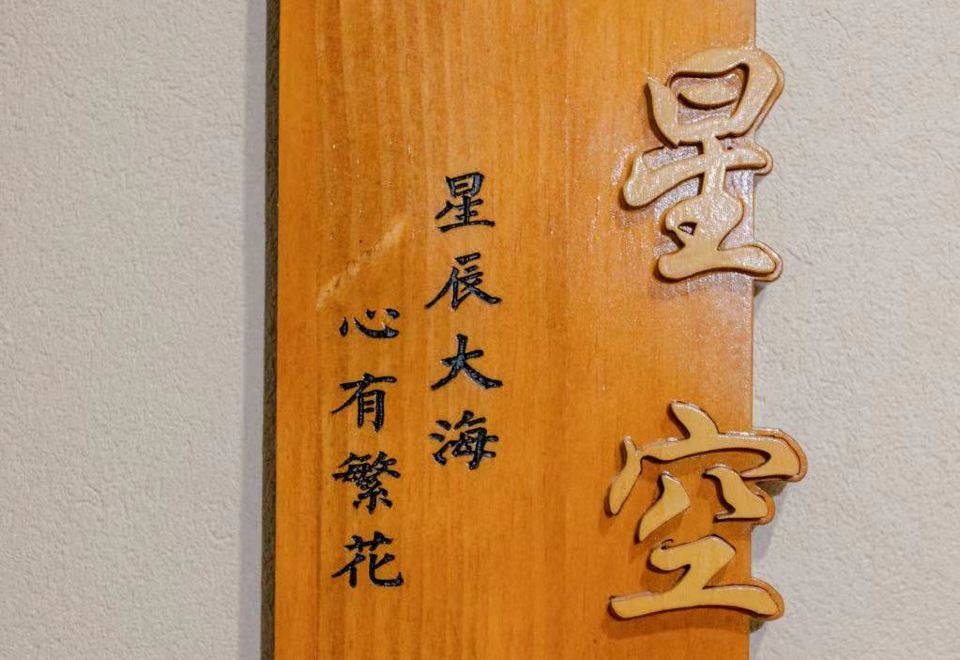 星空
星辰大海
心有繁花